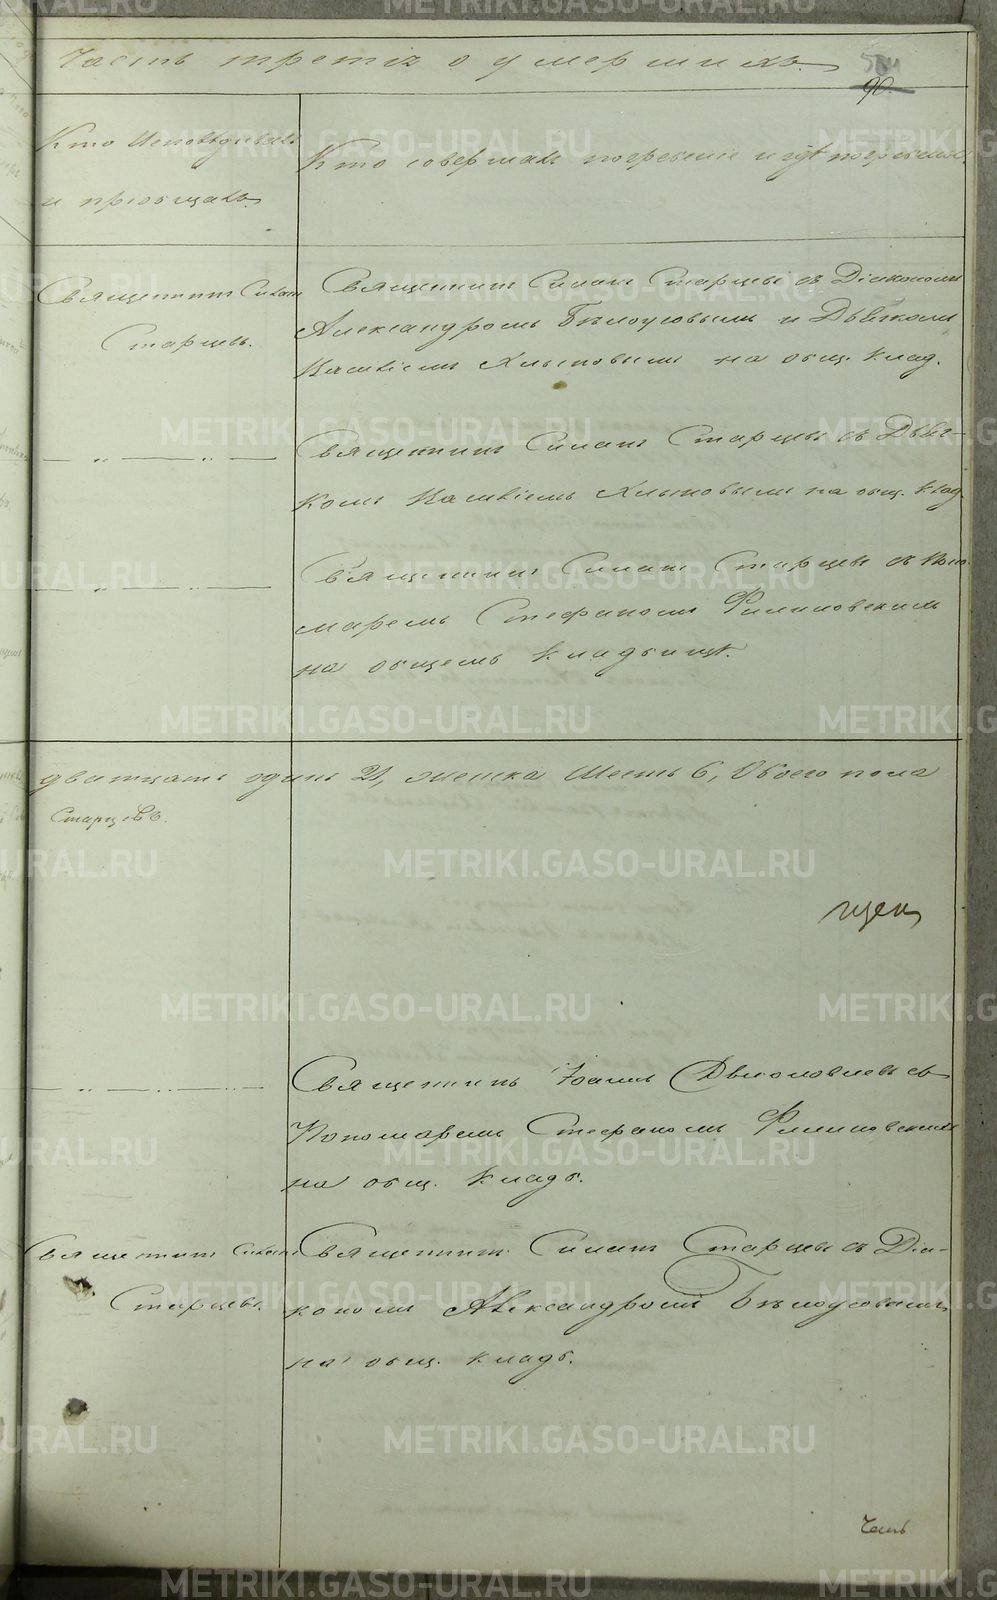 Часть третія о умершихъ.
90.
Кто исповѣдывалъ
и пріобщалъ.
Кто совершалъ погребеніе и гдѣ погребены
Священникъ Силантій
Старцевъ.
Священникъ Силантій Старцевъ съ Діакономъ
Александромъ Бѣлоусовымъ и Дьячкомъ
Хлыновымъ на общ. клад.
— „ — „ —
Священникъ Силантій Старцевъ съ Дьяч-
комъ Хлыновымъ на общ. клад.
— „ — „ —
Священникъ Силантій Старцевъ съ Поно-
маремъ Стефаномъ Филиповскимъ
на общемъ кладбищѣ.
двадцать одинъ 21, женска шесть 6, Обоего пола
Старцевъ.
— „ — „ —
Священникъ Іоаннъ съ
Пономаремъ Стефаномъ Филиповскимъ
на общ. кладб.
Священникъ Силантій
Старцевъ.
Священникъ Силантій Старцевъ съ Діа-
кономъ Александромъ Бѣлоусовымъ
на общ. кладб.
Часть
METRIKI.GASO-URAL.RU